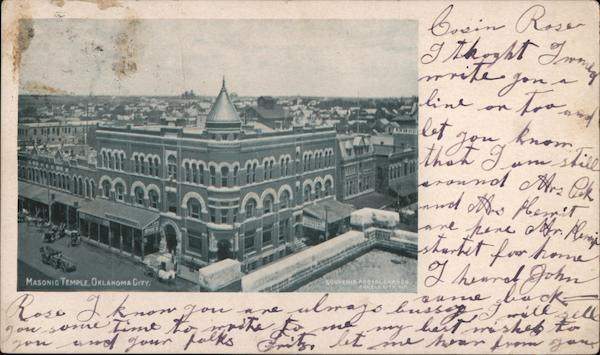 Cosin Rose
I thoght I would
write you a
line or too and
let you know
that I am still
around Mrs
and Mrs Merrit
are here Mr
startet for home
I heard John
came back
MASONIC TEMPLE, OKLAHOMA CITY.
SOUVENIR POSTAL CARD CO.
Rose I know you are always bussy I will tell
you some time to write to me my best wishes to
you and your folks Fritz let me hear from you